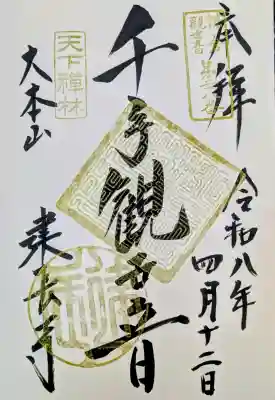 奉拝
令和八年
四月十二日
千手観世音
天下禅林
大本山
建長寺